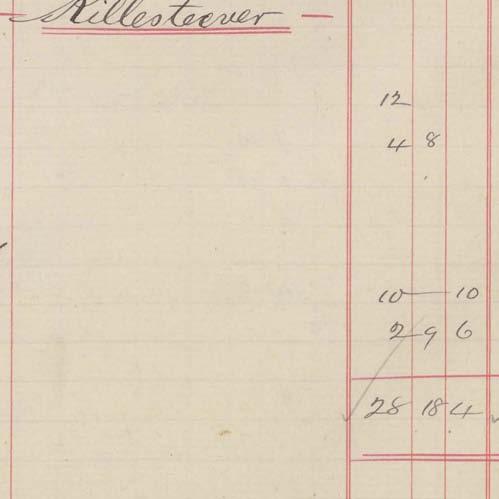 Killesteever
12
4 8
10 — 10
2 9 6
28 18 4